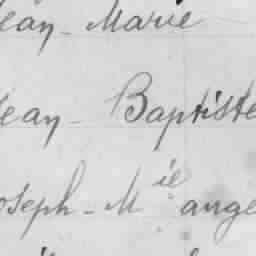 Jean - Marie
Jean - Baptiste
Joseph - Mie ange